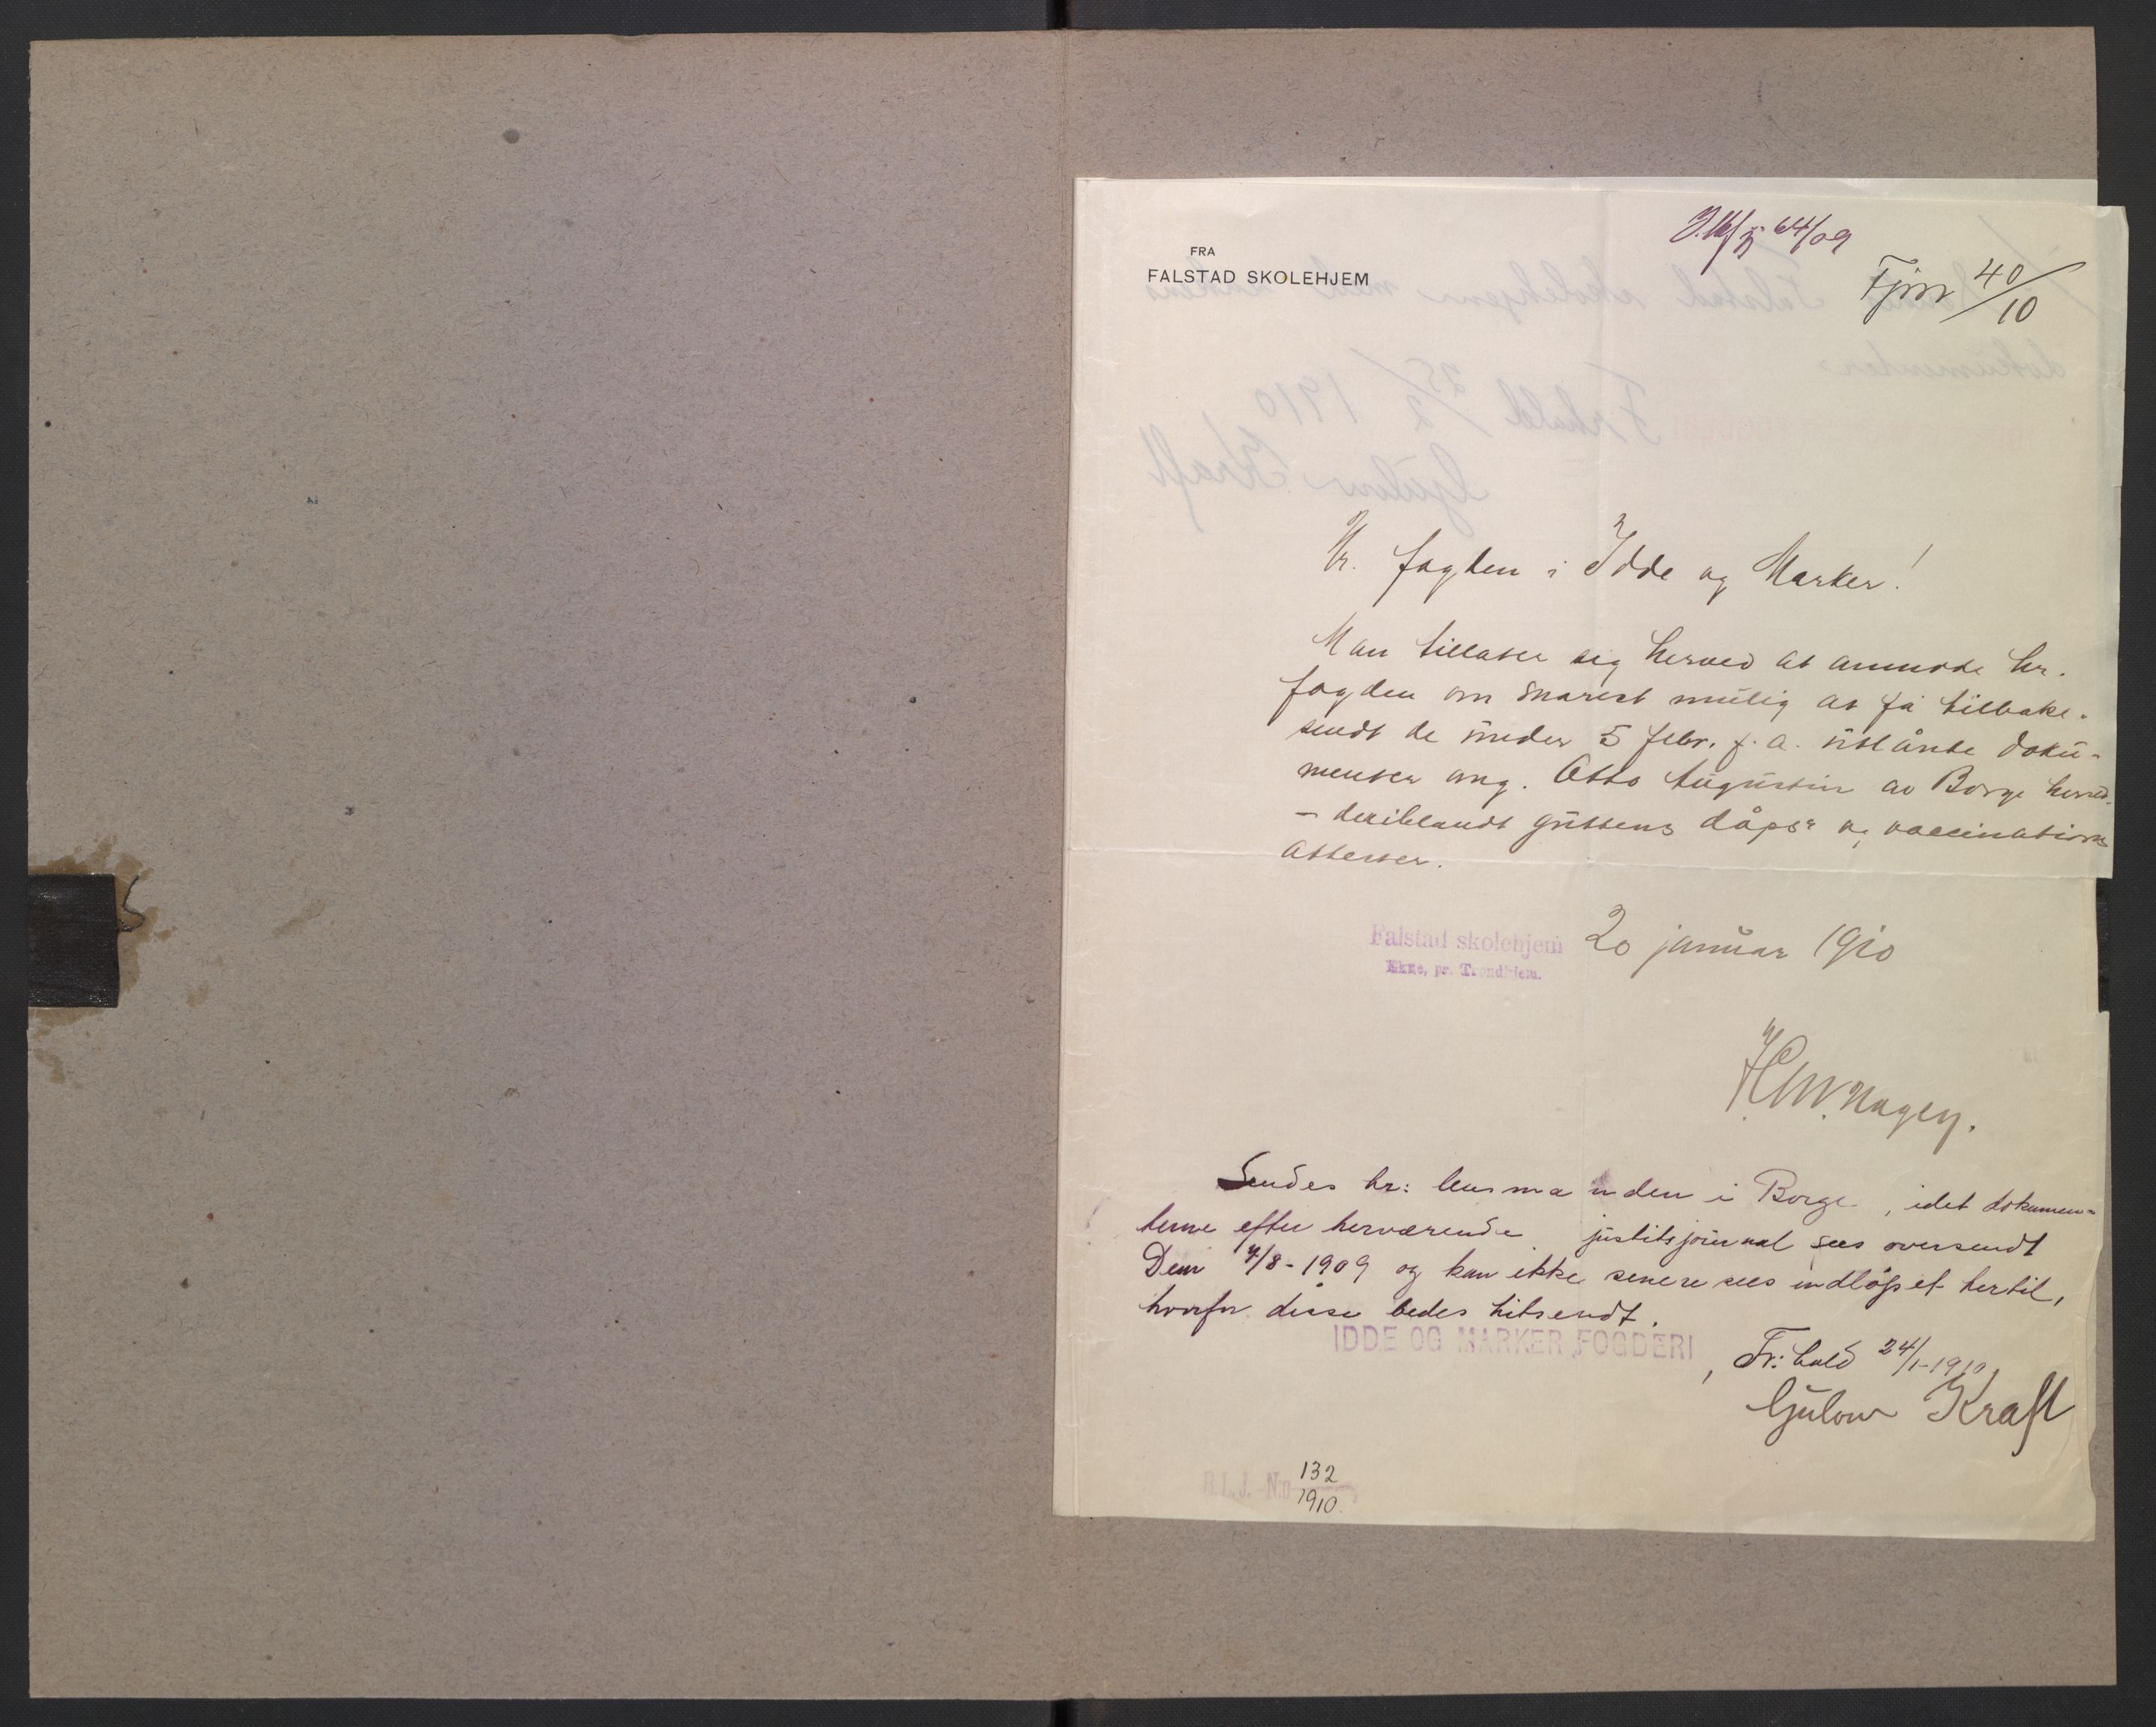 FRA
FALSTAD SKOLEHJEM
64/09
Fjnr 40/10
Hr. fogden i Idde og Marker!
Man tillater sig herved at anmode hr.
fogden om snarest mulig at få tilbake-
sendt de under 5 febr. f. a. utlånte doku-
menter ang. Otto Augustin av Borge herred.
- deriblandt guttens dåps- og vaccinations
attester.
Falstad skolehjem 20 januar 1910
Ekne, pr. Trondhjem.
Sendes hr: lensmanden i Borge, idet dokumen-
terne efter herværende justitsjournal sees oversendt
Dem 4/8-1909 og kan ikke senere sees indløpet hertil,
hvorfor disse bedes hitsendt.
IDDE OG MARKER FOGDERI, Fr:hald 24/1-1910
Gulow Kraft
B.L.J. No 132
1910.